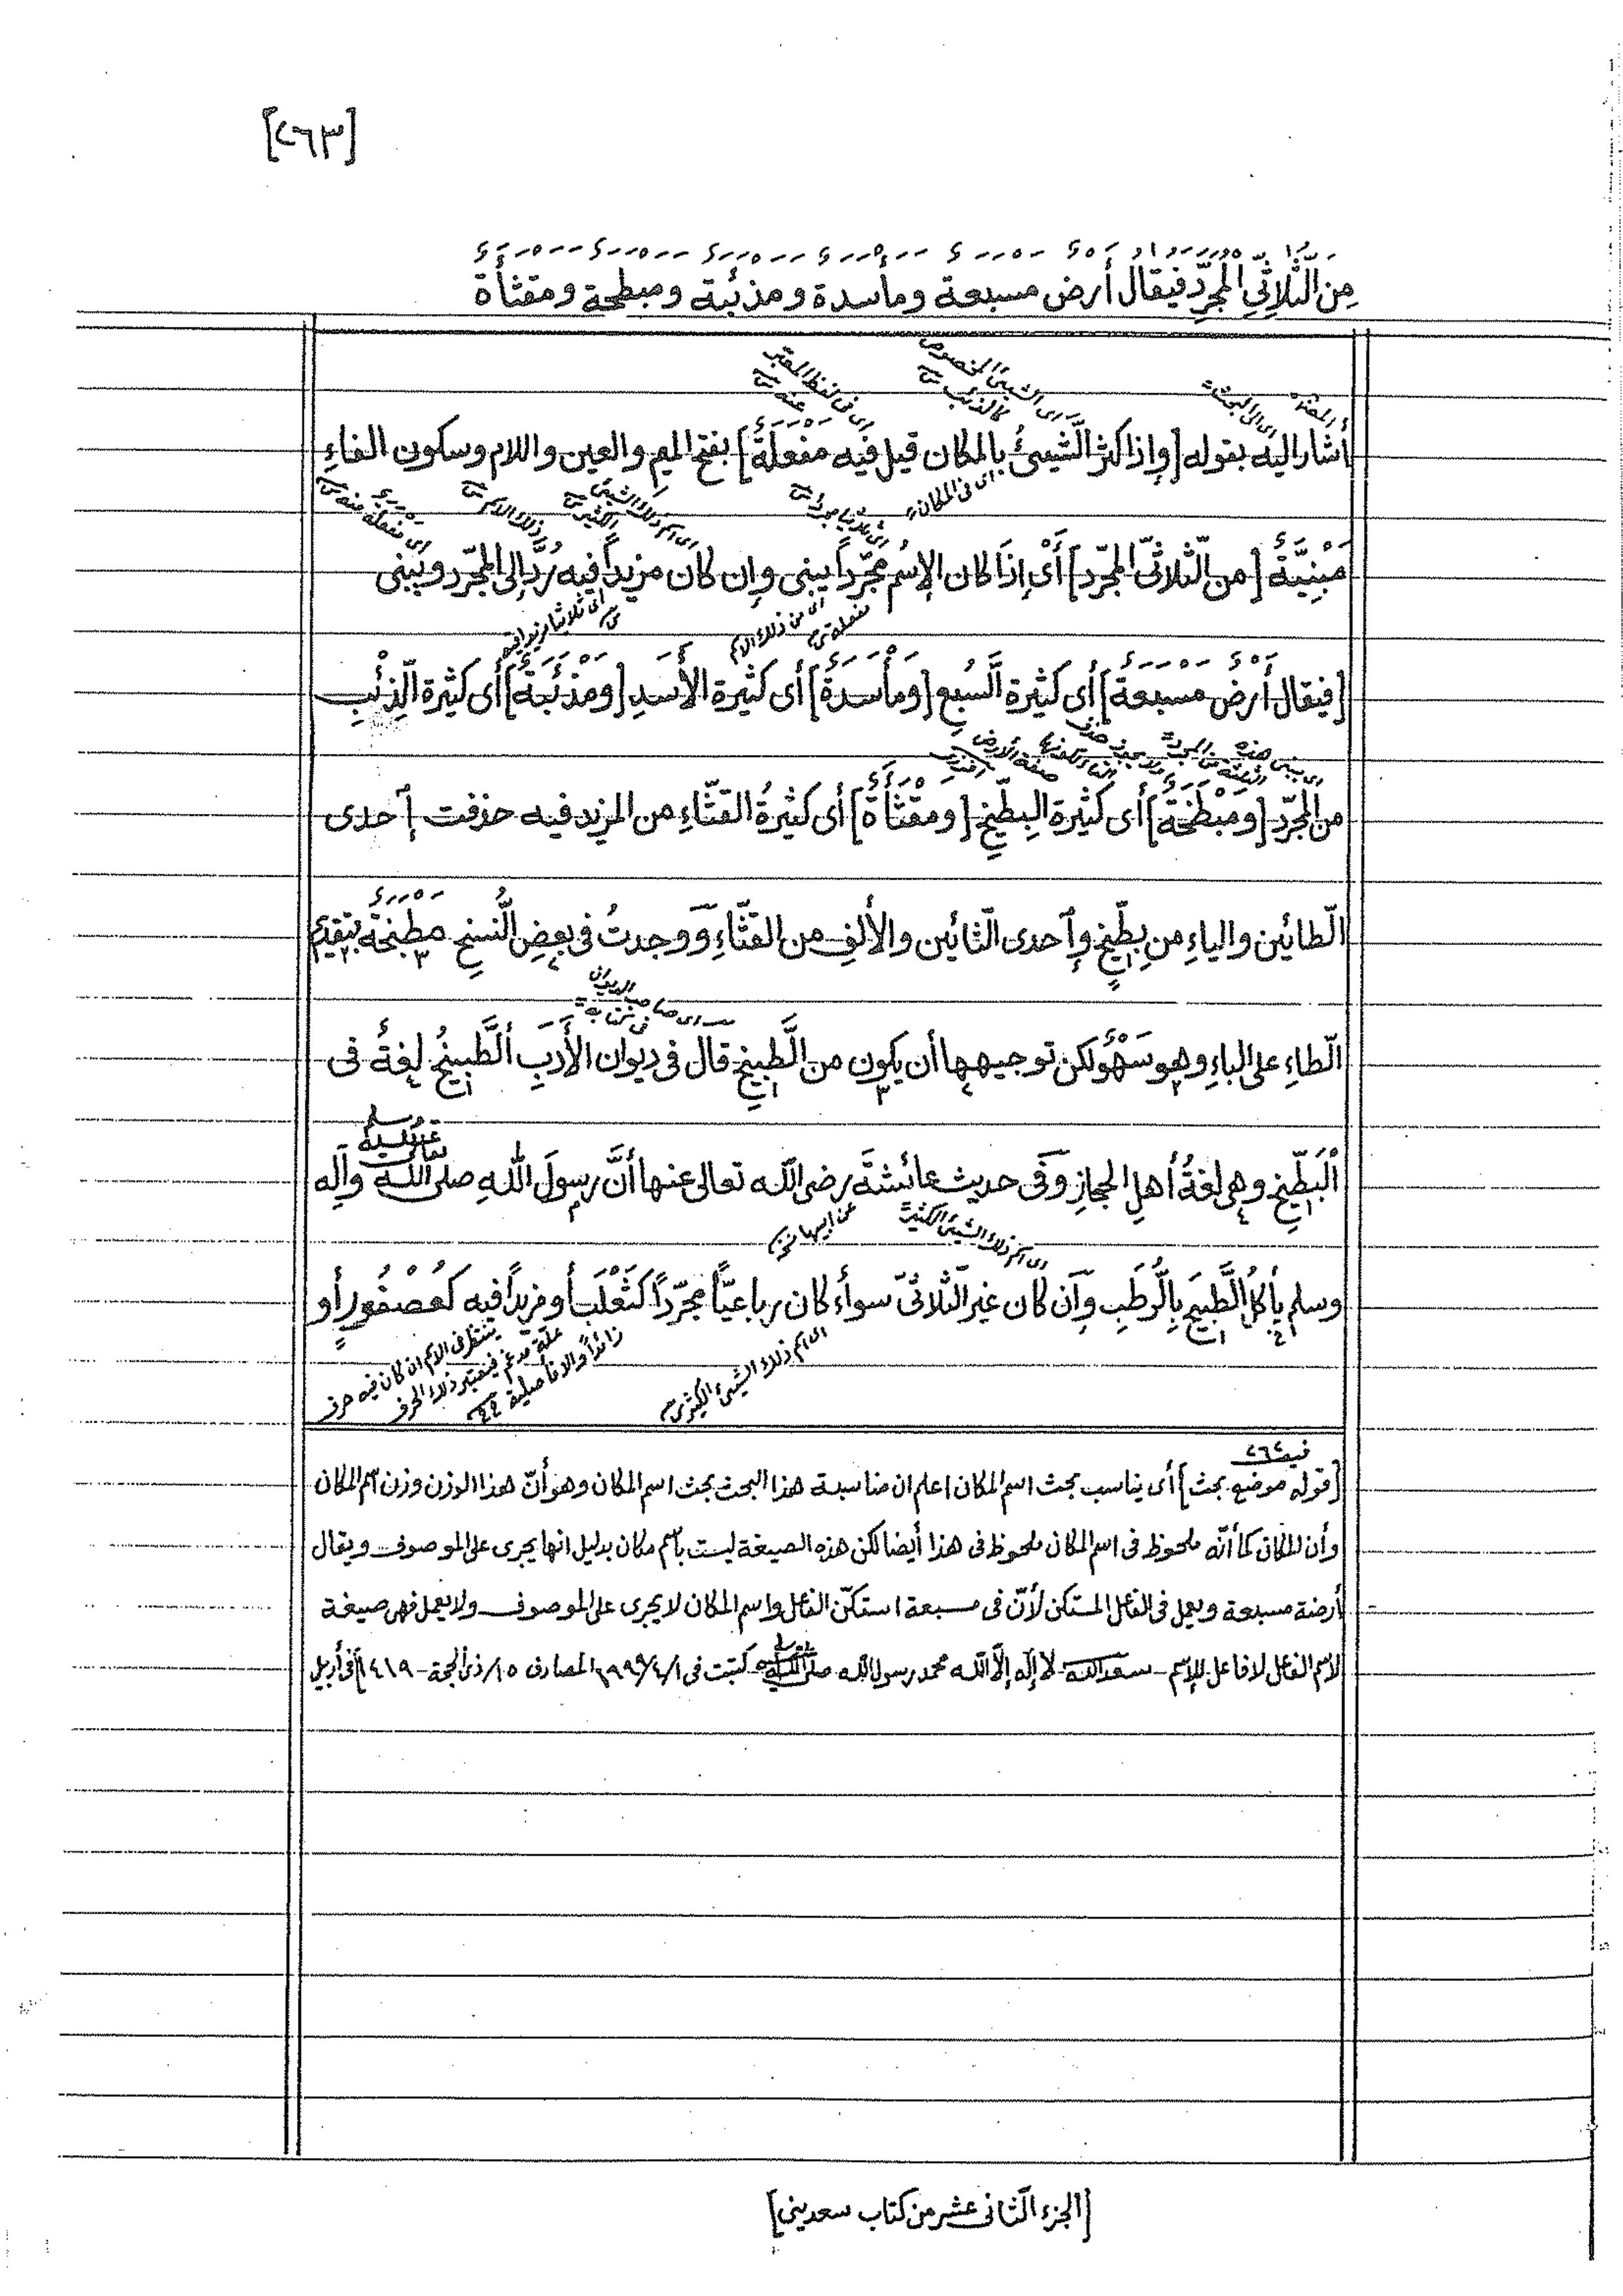 [٢٦٣]
مِنَ الثُّلاثِيِّ الْمُجَرَّدِ فيقال أرض مسبعة ومأسدة ومذئبة ومبطحة ومقثأة
أشار اليه بقوله [وإذا كثر الشّيئُ بالمكان قيل فيه مفعلة] بفتح الميم والعين واللام وسكون الفاءِ
اى فى المكان
مَبْنِيَّةٌ [من الثّلاثىّ المجّرد] أَىْ إِذَا كان الإسْمُ مجّرداً يبنى وإن كان مزيداً فيه رُدَّ إلى المجّرد ويبنى
اى من ذلك الاسم
[فيقال أَرْضٌ مَسْبَعَةٌ] أى كثيرة السَّبُعِ [ومَأْسَدَةٌ] أى كثيرة الأَسَدِ [ومَذْئَبَةٌ] أى كثيرة الذِّئْبِ
من المجّرد [ومَبْطَخَةٌ] أى كثيرة البِطّيخِ [ومَقْثَأَةٌ] أى كثيرةُ القثّاءِ من المزيد فيه حذفت إحدى
الطّائين والياءِ من بِطّيخٍ وإحدى الثّائين والألفِ من القثّاءِ ووجدتُ فى بعضِ النُّسخِ مَطْبَخَةٌ بتقديم
الطّاءِ على الباءِ وهو سَهْوٌ لكن توجيهها أن يكون من الطَّبيخِ قال فى ديوان الأَدَبِ ألطَّبيخُ لغةٌ فى
ألْبَطِّيخِ وهى لغةُ أهلِ الحجازِ وفى حديث عائشةَ رضى الله تعالى عنها أنَّ رسولَ اللهِ صلى الله تعالى عليه وآله وسلم
اى اسم ذلك الشيئ الكثير
وسلم يأكلُ الطَّبيخَ بالرُّطَبِ وإن كان غيرَ الثّلاثىّ سواءٌ كان رباعيّاً مجّرداً كَثَعْلَبٍ أو مزيداً فيه كعُصْفُورٍ أو
اى اسم ذلك الشيئ الكثير
ينتظر فى الاسم ان كان فيه حرف
علة مدغم فيعتبر ذلك الحرف
زائداً والا فأصلية
[قوله موضع بحث] أى يناسب بحث اسم المكان اعلم ان مناسبة هذا البحث بحث اسم المكان وهو أنّ هذا الوزن وزن اسم المكان
وأن المكان كما أنّه ملحوظ فى اسم المكان ملحوظ فى هذا أيضا لكن هذه الصيغة ليست باسم مكان بدليل انها يجرى على الموصوف ويقال
أرضة مسبعة ويعمل فى الفاعل المستكن لأنّ فى مسبعة استكنّ الفاعل واسم المكان لايجرى على الموصوف ولا يعمل فهى صيغة
لاسم الفاعل لا فاعل للإسم - سعد الله لا إله إلّا الله محمد رسول الله كتبت فى ١/٤/١٩٩٩ المصادف ١٥/ذى الحجة - ١٤١٩ فى أبريل
[الجزء الثّانى عشر من كتاب سعدينى]